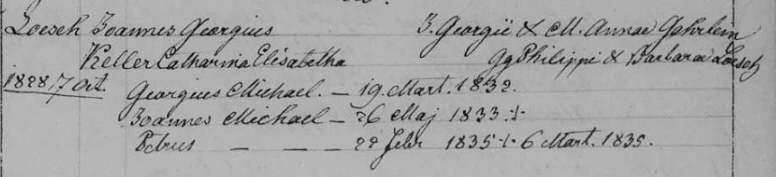 Loesch Joannes Georgius J. Georgii & M. Annae Gehrlein
Keller Catharina Elisabetha Gg Philippi & Barbarae Loesch
1828 7 Oct. Georgius Michael. — 19. Mart. 1832.
Joannes Michael — 26 Maj 1833 +
Petrus — — — 22 Febr 1835 + 6 Mart. 1835.